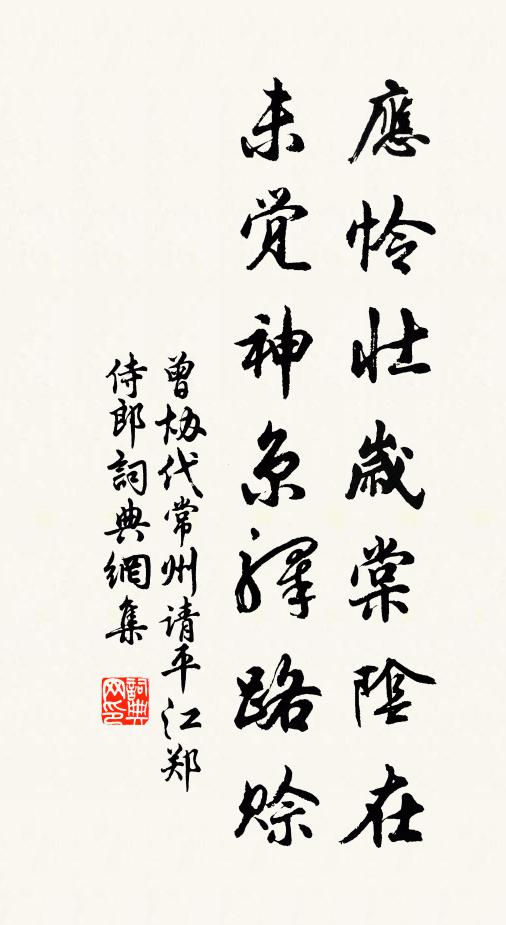 應怜壮歲棠陰在
未覚神京驛路賒
曾协代常州请平江郑
侍郎詞典網集
詞典网印